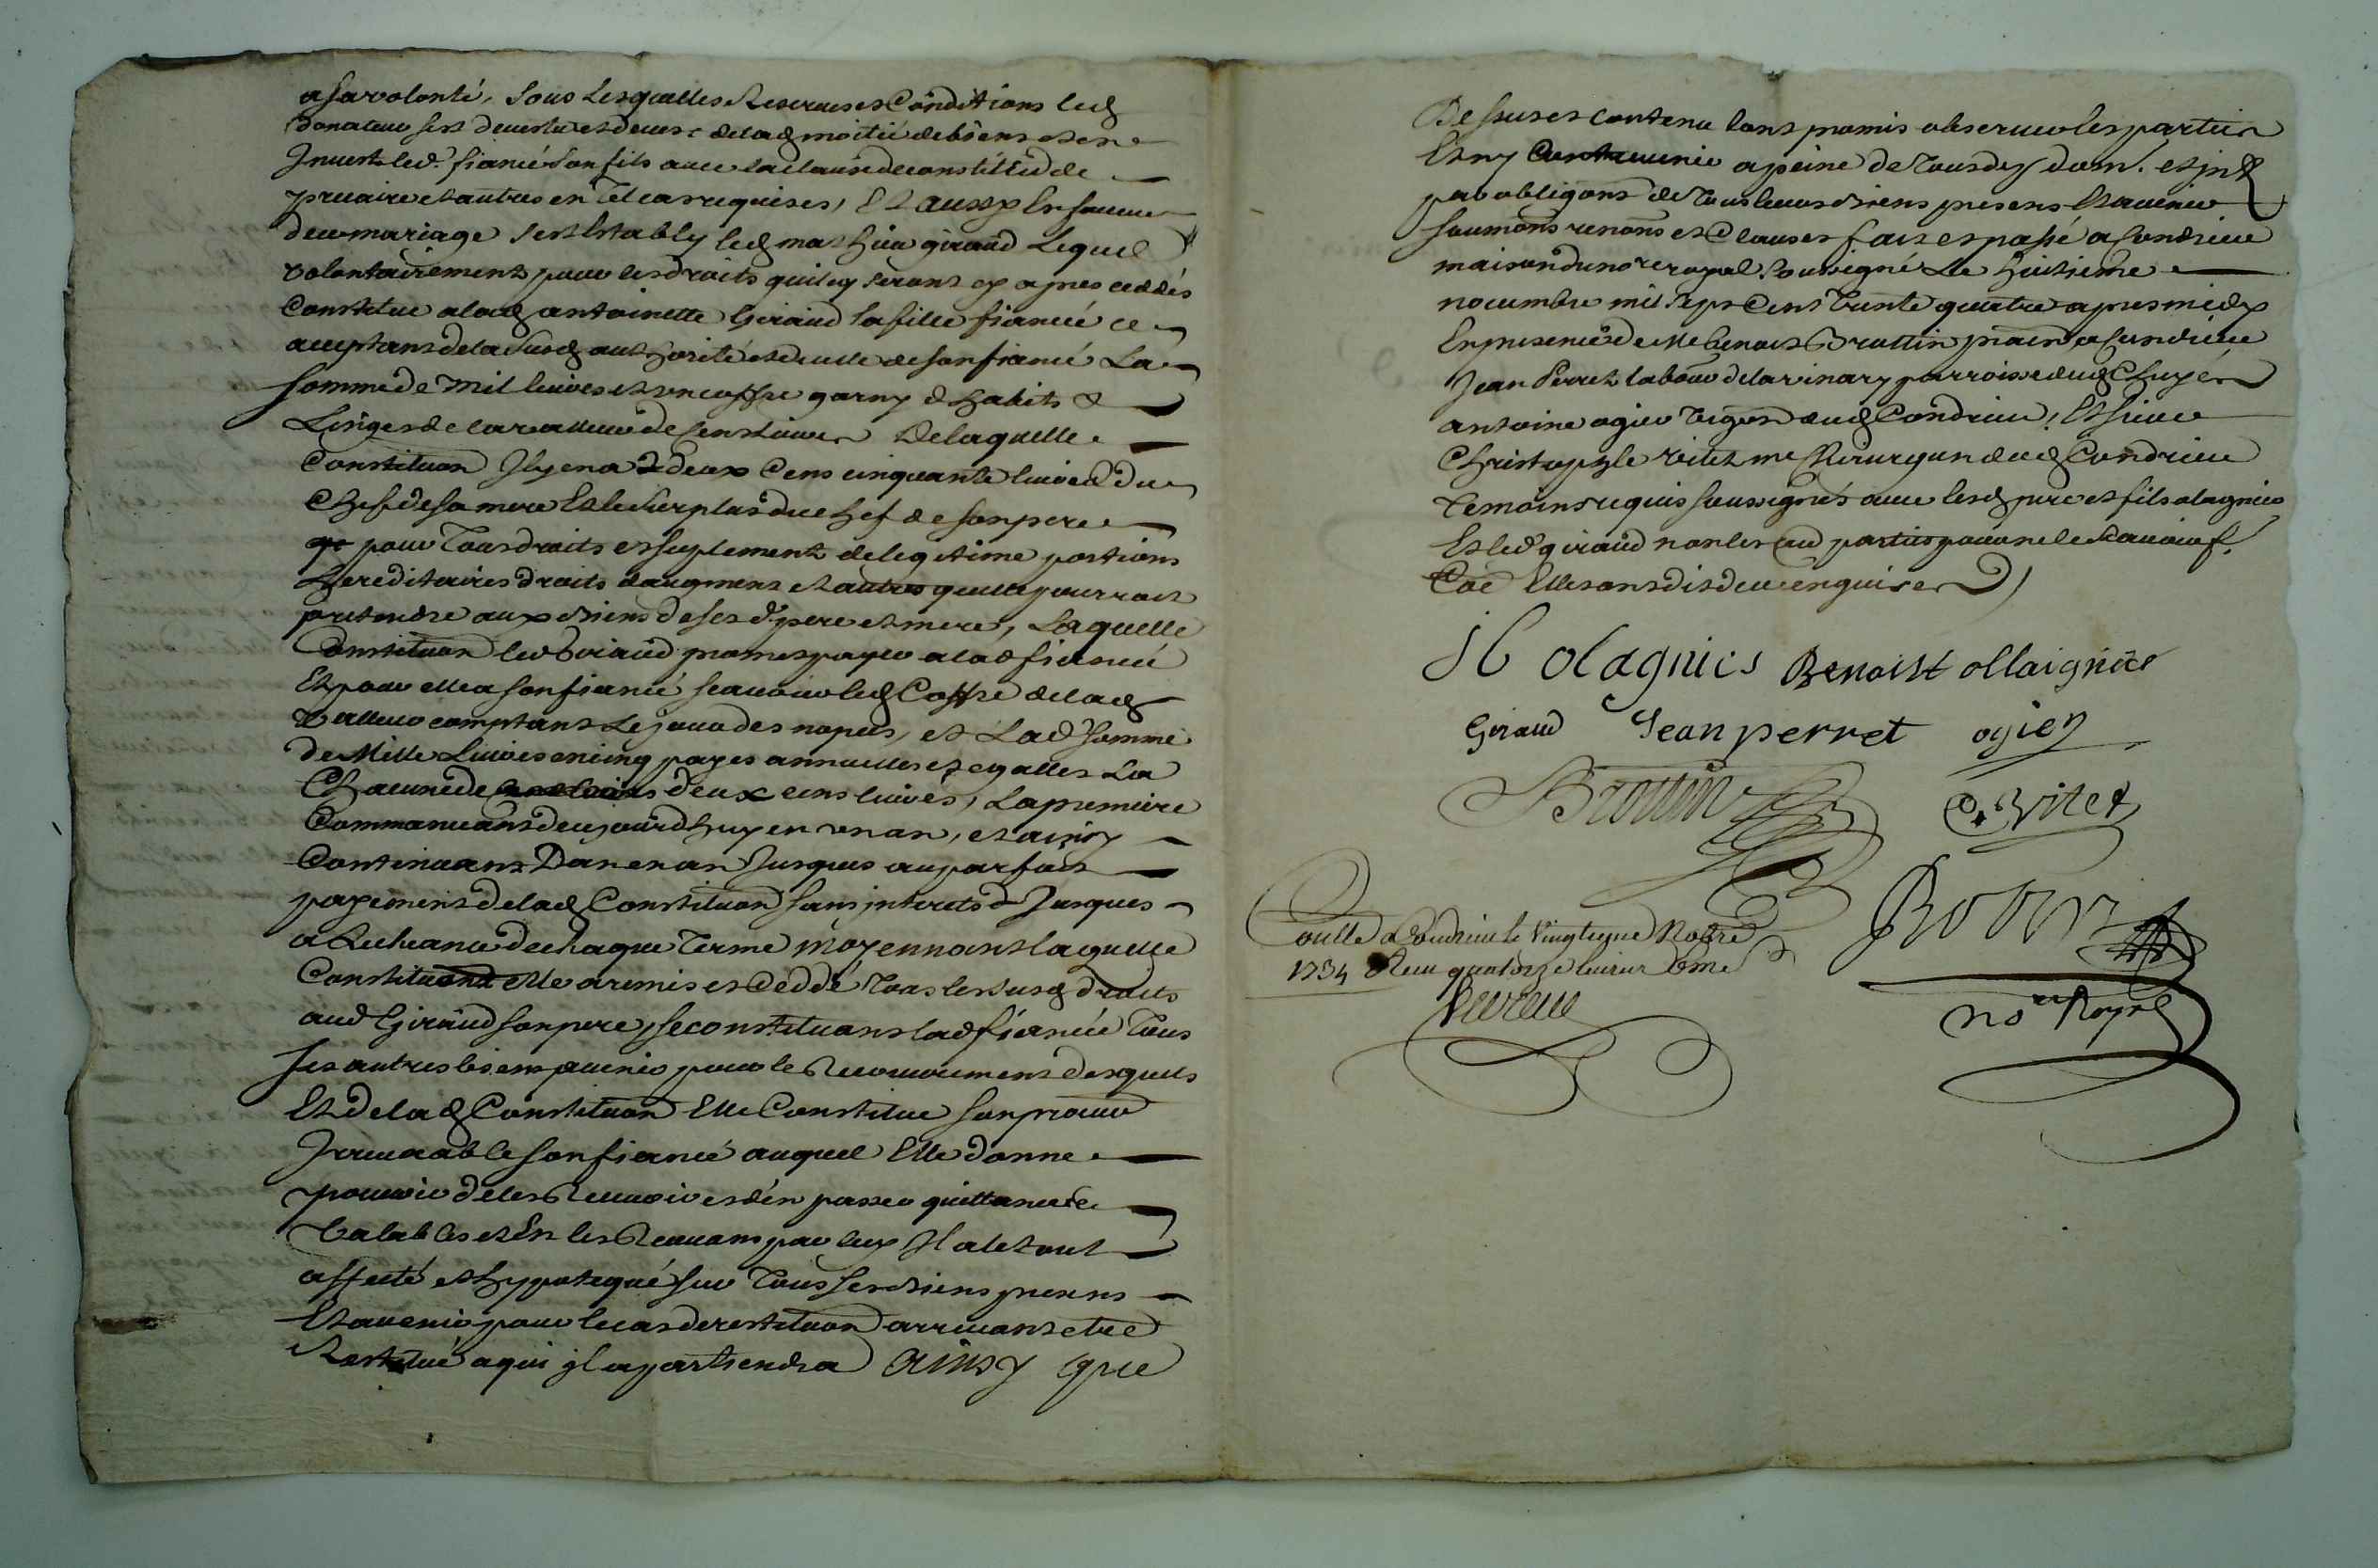 a sa volonté, Sous Lesquelles Reserues et Conditions led
donateur sest deuestu et deuest delad moitié de biens et en
Inuest led. fiancé son fils auec la clause de constitut de
precaire et autres en tel cas requises, Et aussy En faueur
du mariage sest Estably led mathieu giraud Lequel
volontairement pour les droits qui luy seront cy apres ceddés
Constitue a lad antoinette Giraud sa fille fiancée ce
acceptant de la susd authorité et de celle de son fiancé La
somme de mil liures et un coffre garny d habits &
Linges de la valleur de Cent liures De laquelle
Constituon Il y en a deux Cens cinquante liures du
Chef de sa mere Et le surplus du chef de son pere
pour Tous droits et suplement de legitime portions
Hereditaires droits daugment et autres quelle pourroit
pretendre aux biens de ses d. pere et mere, Laquelle
Constituon led Giraud promet payer a lad fiancée
Et pour elle a son fiancé scauoir led Coffre de lad
valleur comptant Le jour des nopces, et Lad somme
de Mille Liures en cinq payes annuelles et egalles La
Chacune de deux cens liures, La premiere
Commancant de ce jourdhuy en un an, et ainsy
Continuant Dan en an Jusques au parfait
payement de lad Constituon sans interets Jusques
a Lecheance de chaque Terme moyennant laquelle
Constituon elle a remis et ceddé Tous les susd droits
aud Giraud son pere, se constituant lad fiancée Tous
ses autres biens a uenir pour le Recouurement desquels
Et de lad Constituon Elle Constitue son procur
Irreuocable son fiancé auquel Elle donne
pouuoir de les Receuoir et den passer quittances
Valables et En les Receuant par luy Il a le tout
affecté et hypotequé sur Tous ses biens presens
Et auenir pour le cas de restituon arriuant etre
Restitué a qui il apartiendra ainsy que
Dessus et contenu lont promis obseruer les parties
Et ny Contreuenir a peine de Tous des dom. et int
par obligaons de Tous leurs biens presens Et auenir
soumons renons et Clauses fait et passé a Condrieu
maison du nore royal soussigné Le huitieme
nouembre mil Sept Cens Trente quatre apres midy
En presence de Me benoist Brottin a Condrieu
Jean Perret labour de la vinary parroisse dud Chuyer
antoine ogier vigon dud Condrieu, Et sieur
Christophle vitet me Chirurgien dud Condrieu
Temoins requis soussignés auec lesd pere et fils olagnier
Et led giraud non les au parties pour ne le scauoir f.
Coe Elles ont dit de ce enquises
olagnies Benoist ollaignier
Giraud Jean perret ogier
Brottin C. Vitet
Conllé a Condrieu le Vingtieme Nobre
1734 Receu quatorze liures
nore Royal